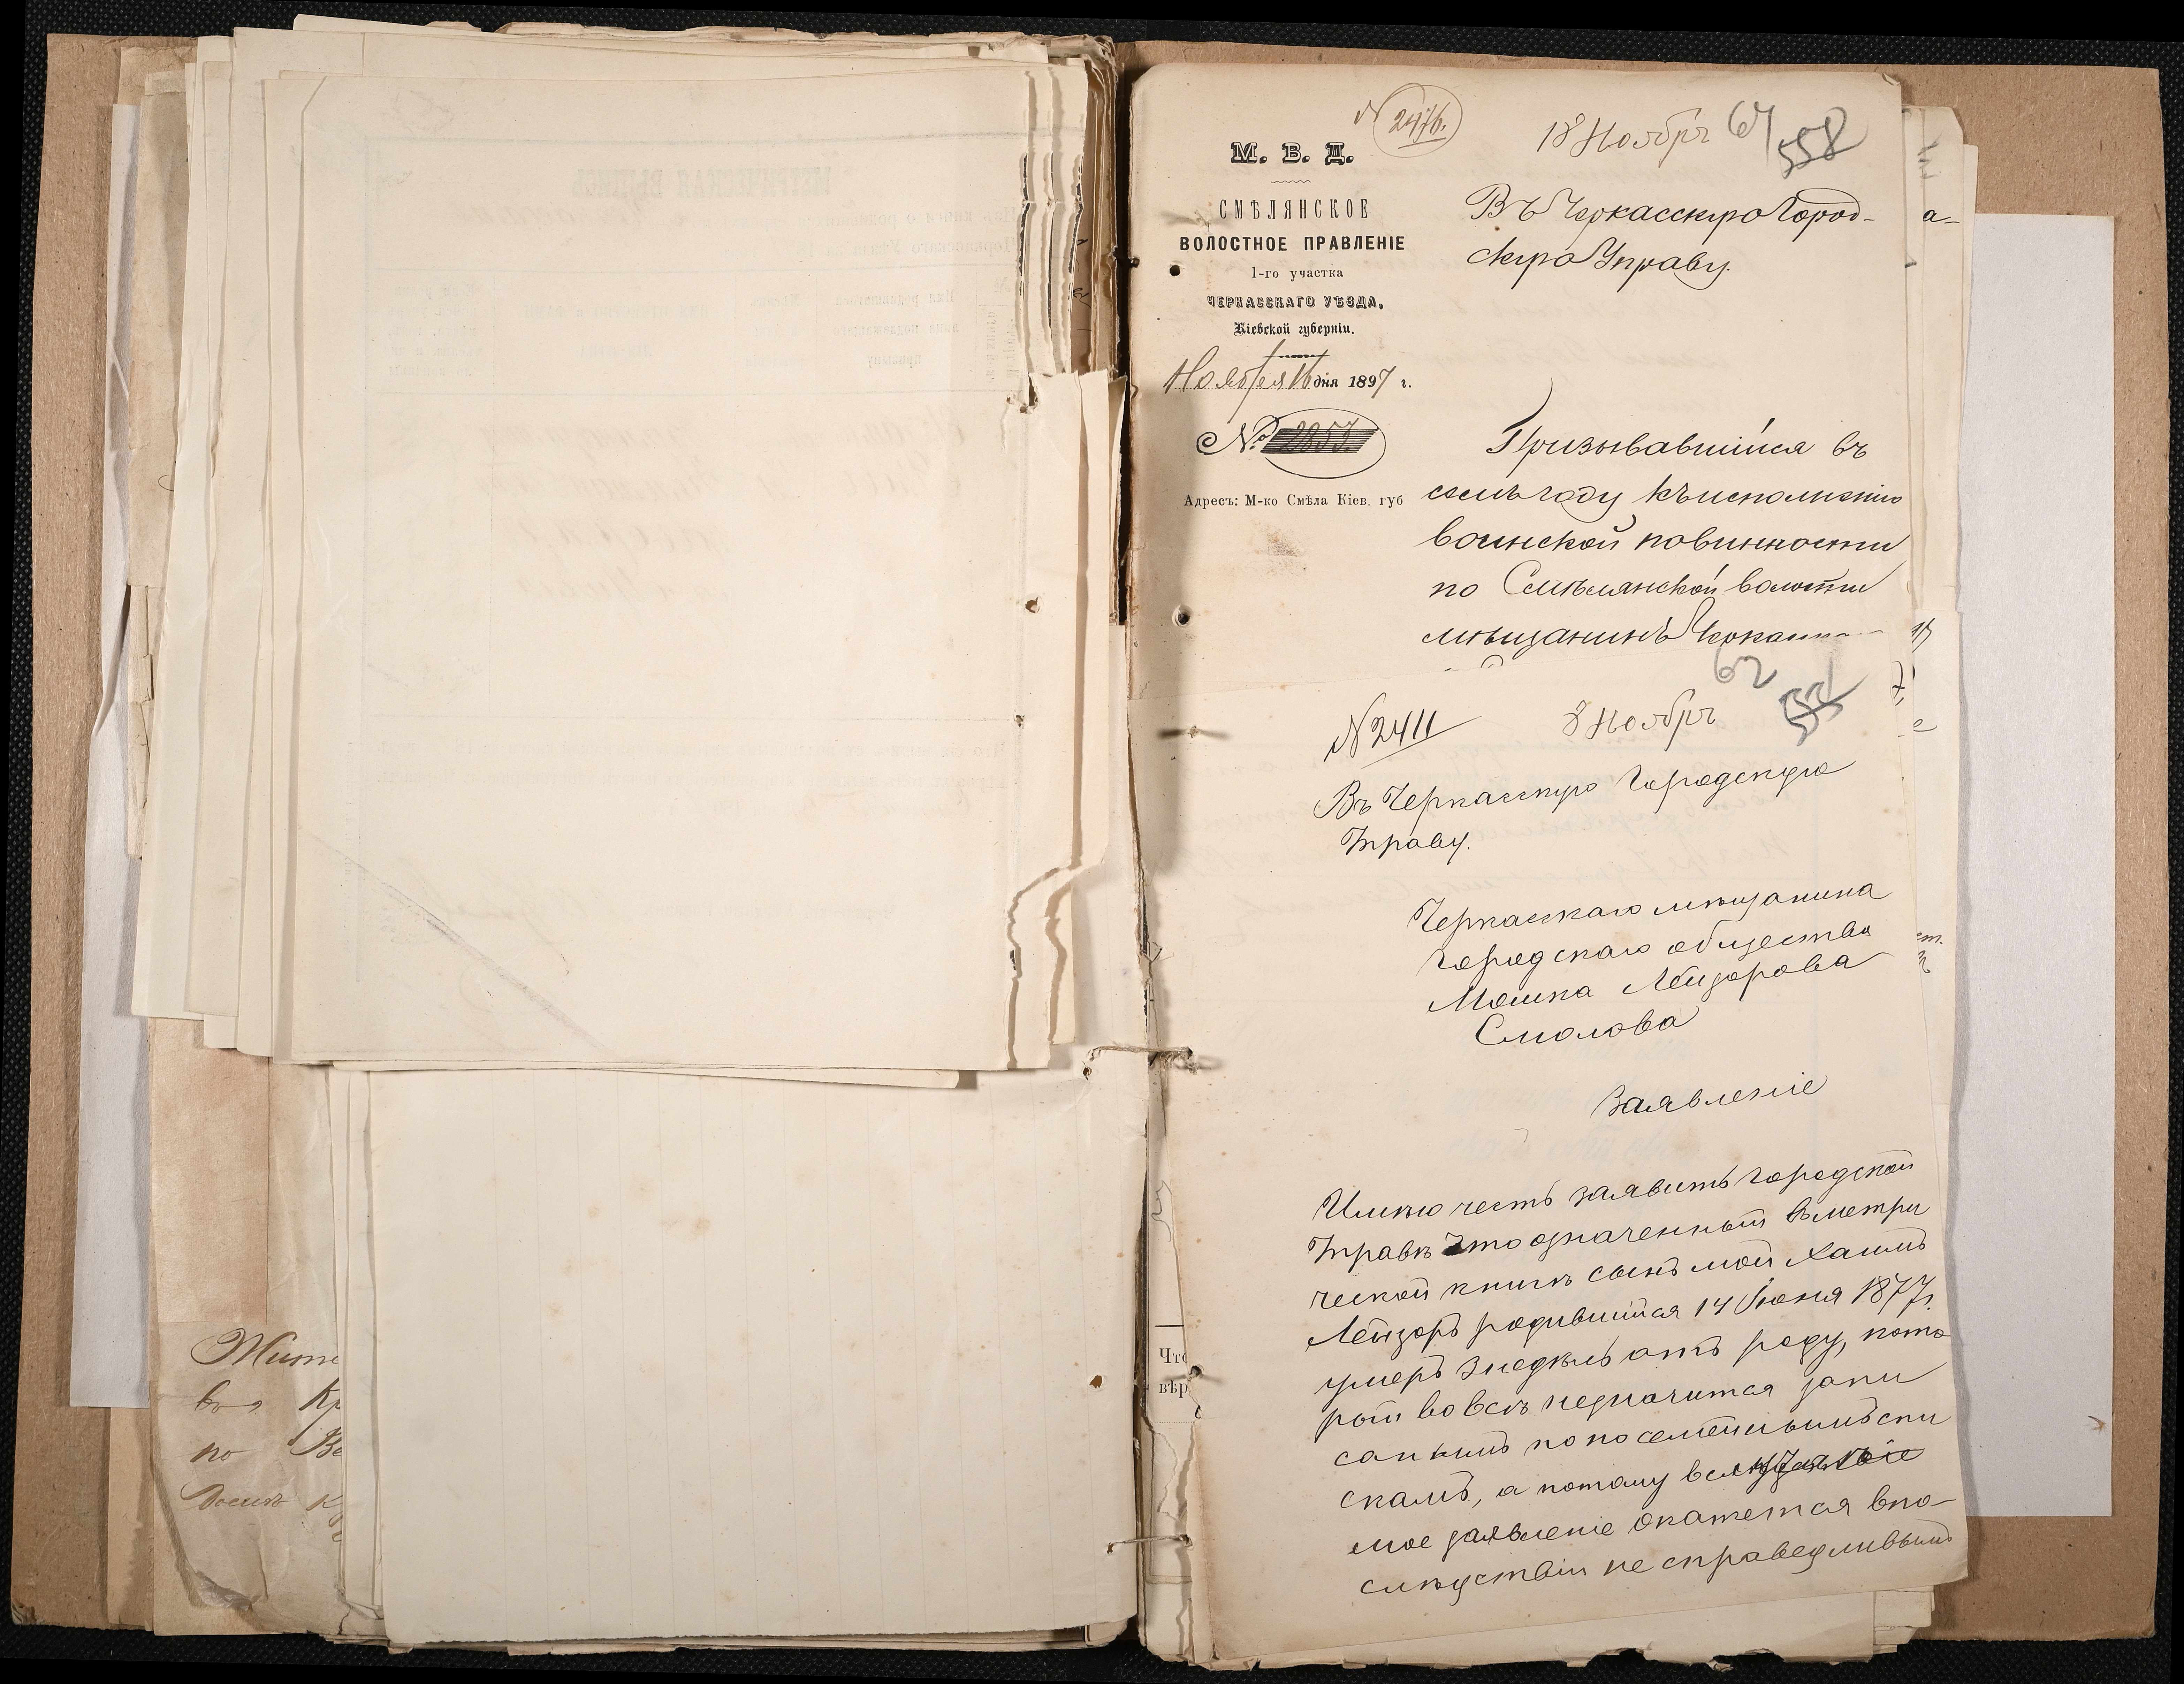 N 2476.
18 Ноябрь 64
558
М. В. Д.
СМѢЛЯНСКОЕ
ВОЛОСТНОЕ ПРАВЛЕНІЕ
1-го участка
ЧЕРКАССКАГО УѢЗДА,
Кіевской губерніи.
Ноября 16 дня 1897 г.
№ 2857
Адресъ: М-ко Смѣла Кіев. губ
Въ Черкасскую Город-
скую Управу.
Призывавшійся въ
семъ году къ исполненію
воинской повинности
по Смѣлянской волости
мѣщанинъ
62
N 2411
8 Ноябрь
Въ Черкасскую Городскую
Управу.
Черкасскаго мѣщанина
городскаго общества
Мошка Лейзорова
Смолова
Заявленіе
Имѣю честь заявить городской
Управѣ что означенный въ метри
ческой книгѣ сынъ мой Хаимъ
Лейзоръ родившійся 14 Іюня 1877 г.
умеръ 3 недѣль отъ роду, кото
рый вовсѣ незначится запи
саннымъ по посемейнымъ спи
скамъ, а потому если
мое заявленіе окажется впо-
слѣдствіи не справедливымъ
Что
вѣр
а-
Жит
во Кр
по Во